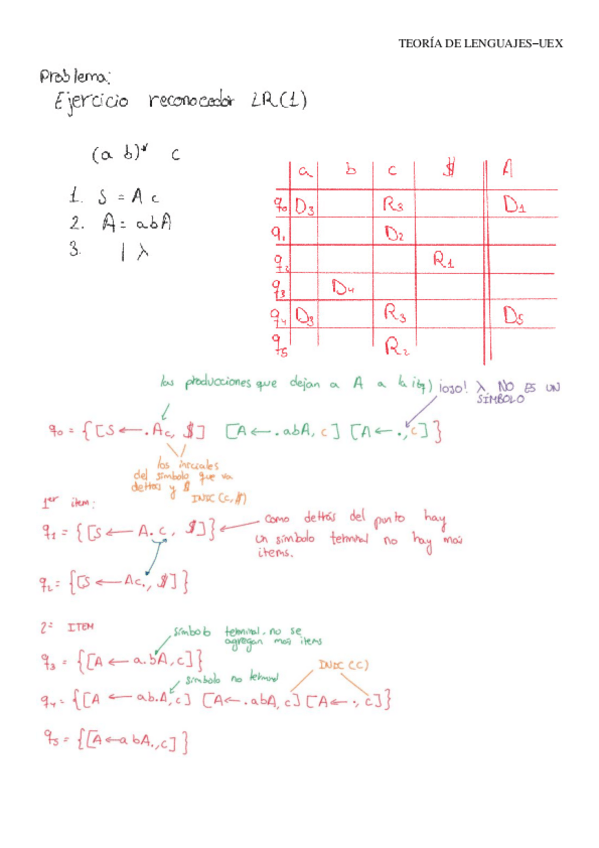 TEORÍA DE LENGUAJES–UEX
Problema:
Ejercicio reconocedor LR(1)
(a b)* c
1. S = A c
2. A = abA
3. | λ
a b c $ A
q0 D3 R3 D1
q1 D2
q2 R1
q3 D4
q4 D3 R3 D5
q5 R2
las producciones que dejan a A a la izq) ¡ojo! λ NO ES UN
SÍMBOLO
q0 = { [S ← .Ac, $] [A ← .abA, c] [A ← ., c] }
los iniciales
del símbolo que va
detrás y $
INIC (c, $)
1er item:
q1 = { [S ← A.c, $] } ← como detrás del punto hay
un símbolo terminal no hay más
items.
q2 = { [S ← Ac., $] }
2º ITEM
símbolo terminal, no se
agregan más items
q3 = { [A ← a.bA, c] }
símbolo no terminal
INIC (c)
q4 = { [A ← ab.A, c] [A ← .abA, c] [A ← ., c] }
q5 = { [A ← abA., c] }